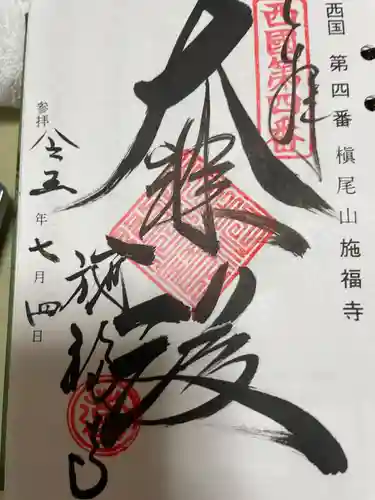 西国 第四番 槇尾山 施福寺
奉拝
西國第四番
大悲殿
施福寺
参拝 令五年七月四日